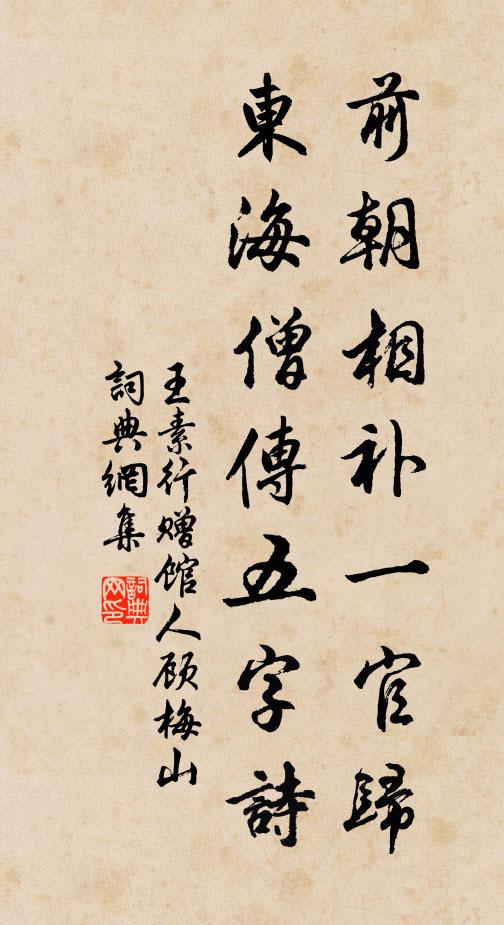 前朝相补一官歸
東海僧傳五字詩
王素行赠馆人顾梅山
詞典網集
詞典
网印